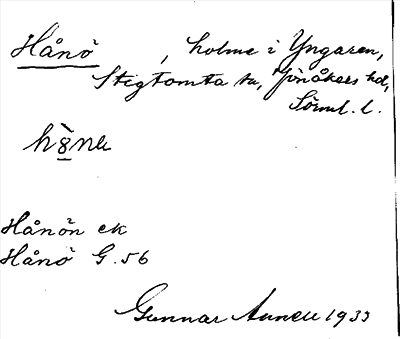 Hånö, holme i Yngaren,
Stigtomta sn, Jönåkers hd,
Söml. l.
Hånön ek
Hånö G. 56
Gunnar 1933